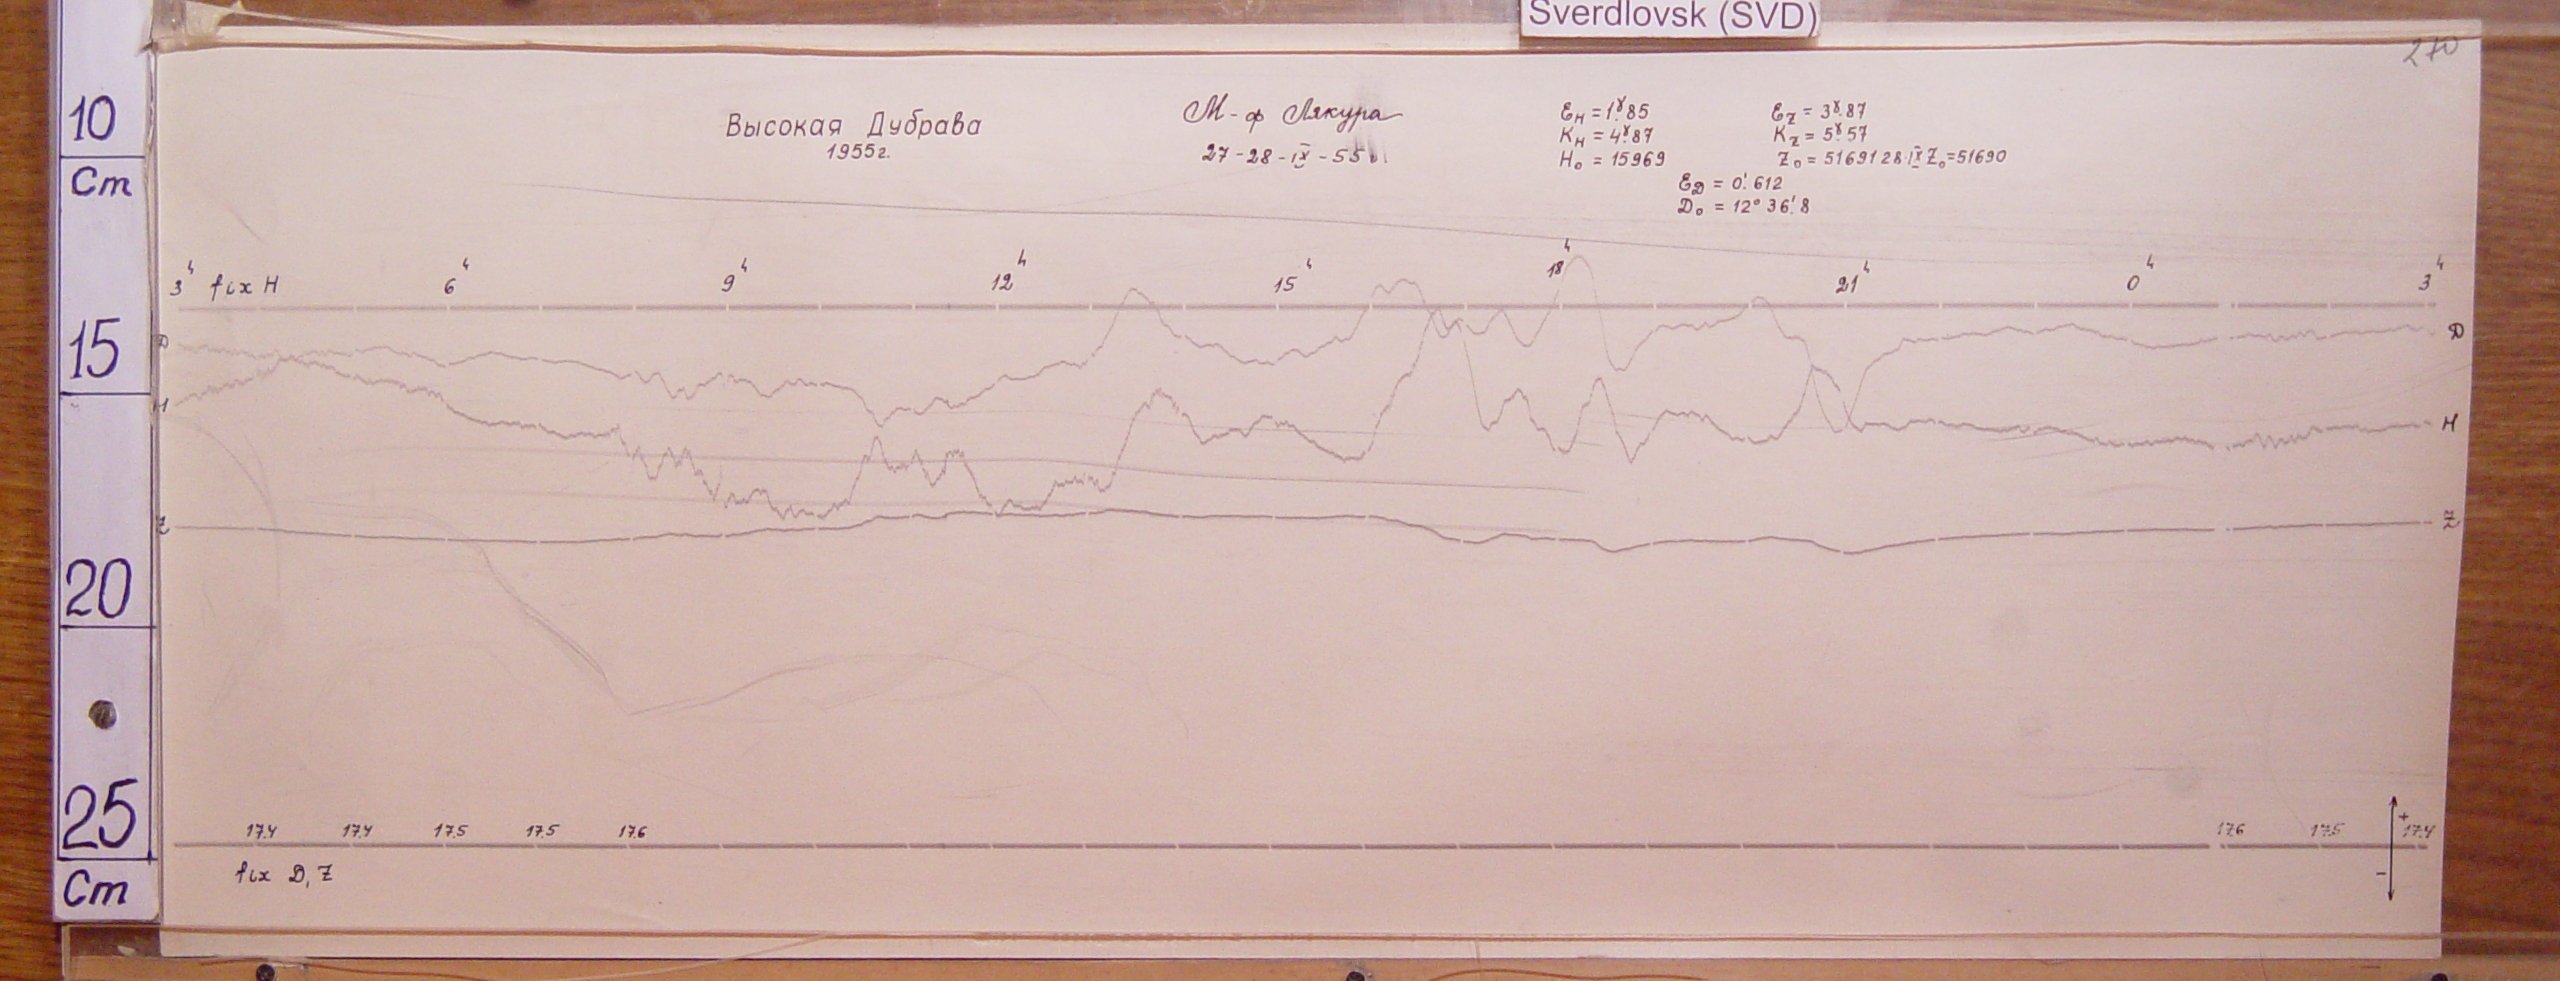 Sverdlovsk (SVD)
270
10
Cm
15
20
25
Cm
Высокая Дубрава
1955г.
М-ф Лякура
27-28-IX-55
εH = 1ˠ.85
KH = 4ˠ.87
H₀ = 15969
εZ = 3ˠ.87
KZ = 5ˠ.57
Z₀ = 51691 28.IX Z₀=51690
εD = 0'.612
D₀ = 12° 36'.8
3ʰ fix H 6ʰ 9ʰ 12ʰ 15ʰ 18ʰ 21ʰ 0ʰ 3ʰ
D D
H H
Z Z
17.4 17.4 17.5 17.5 17.6 17.6 17.5 17.4
+
-
fix D, Z